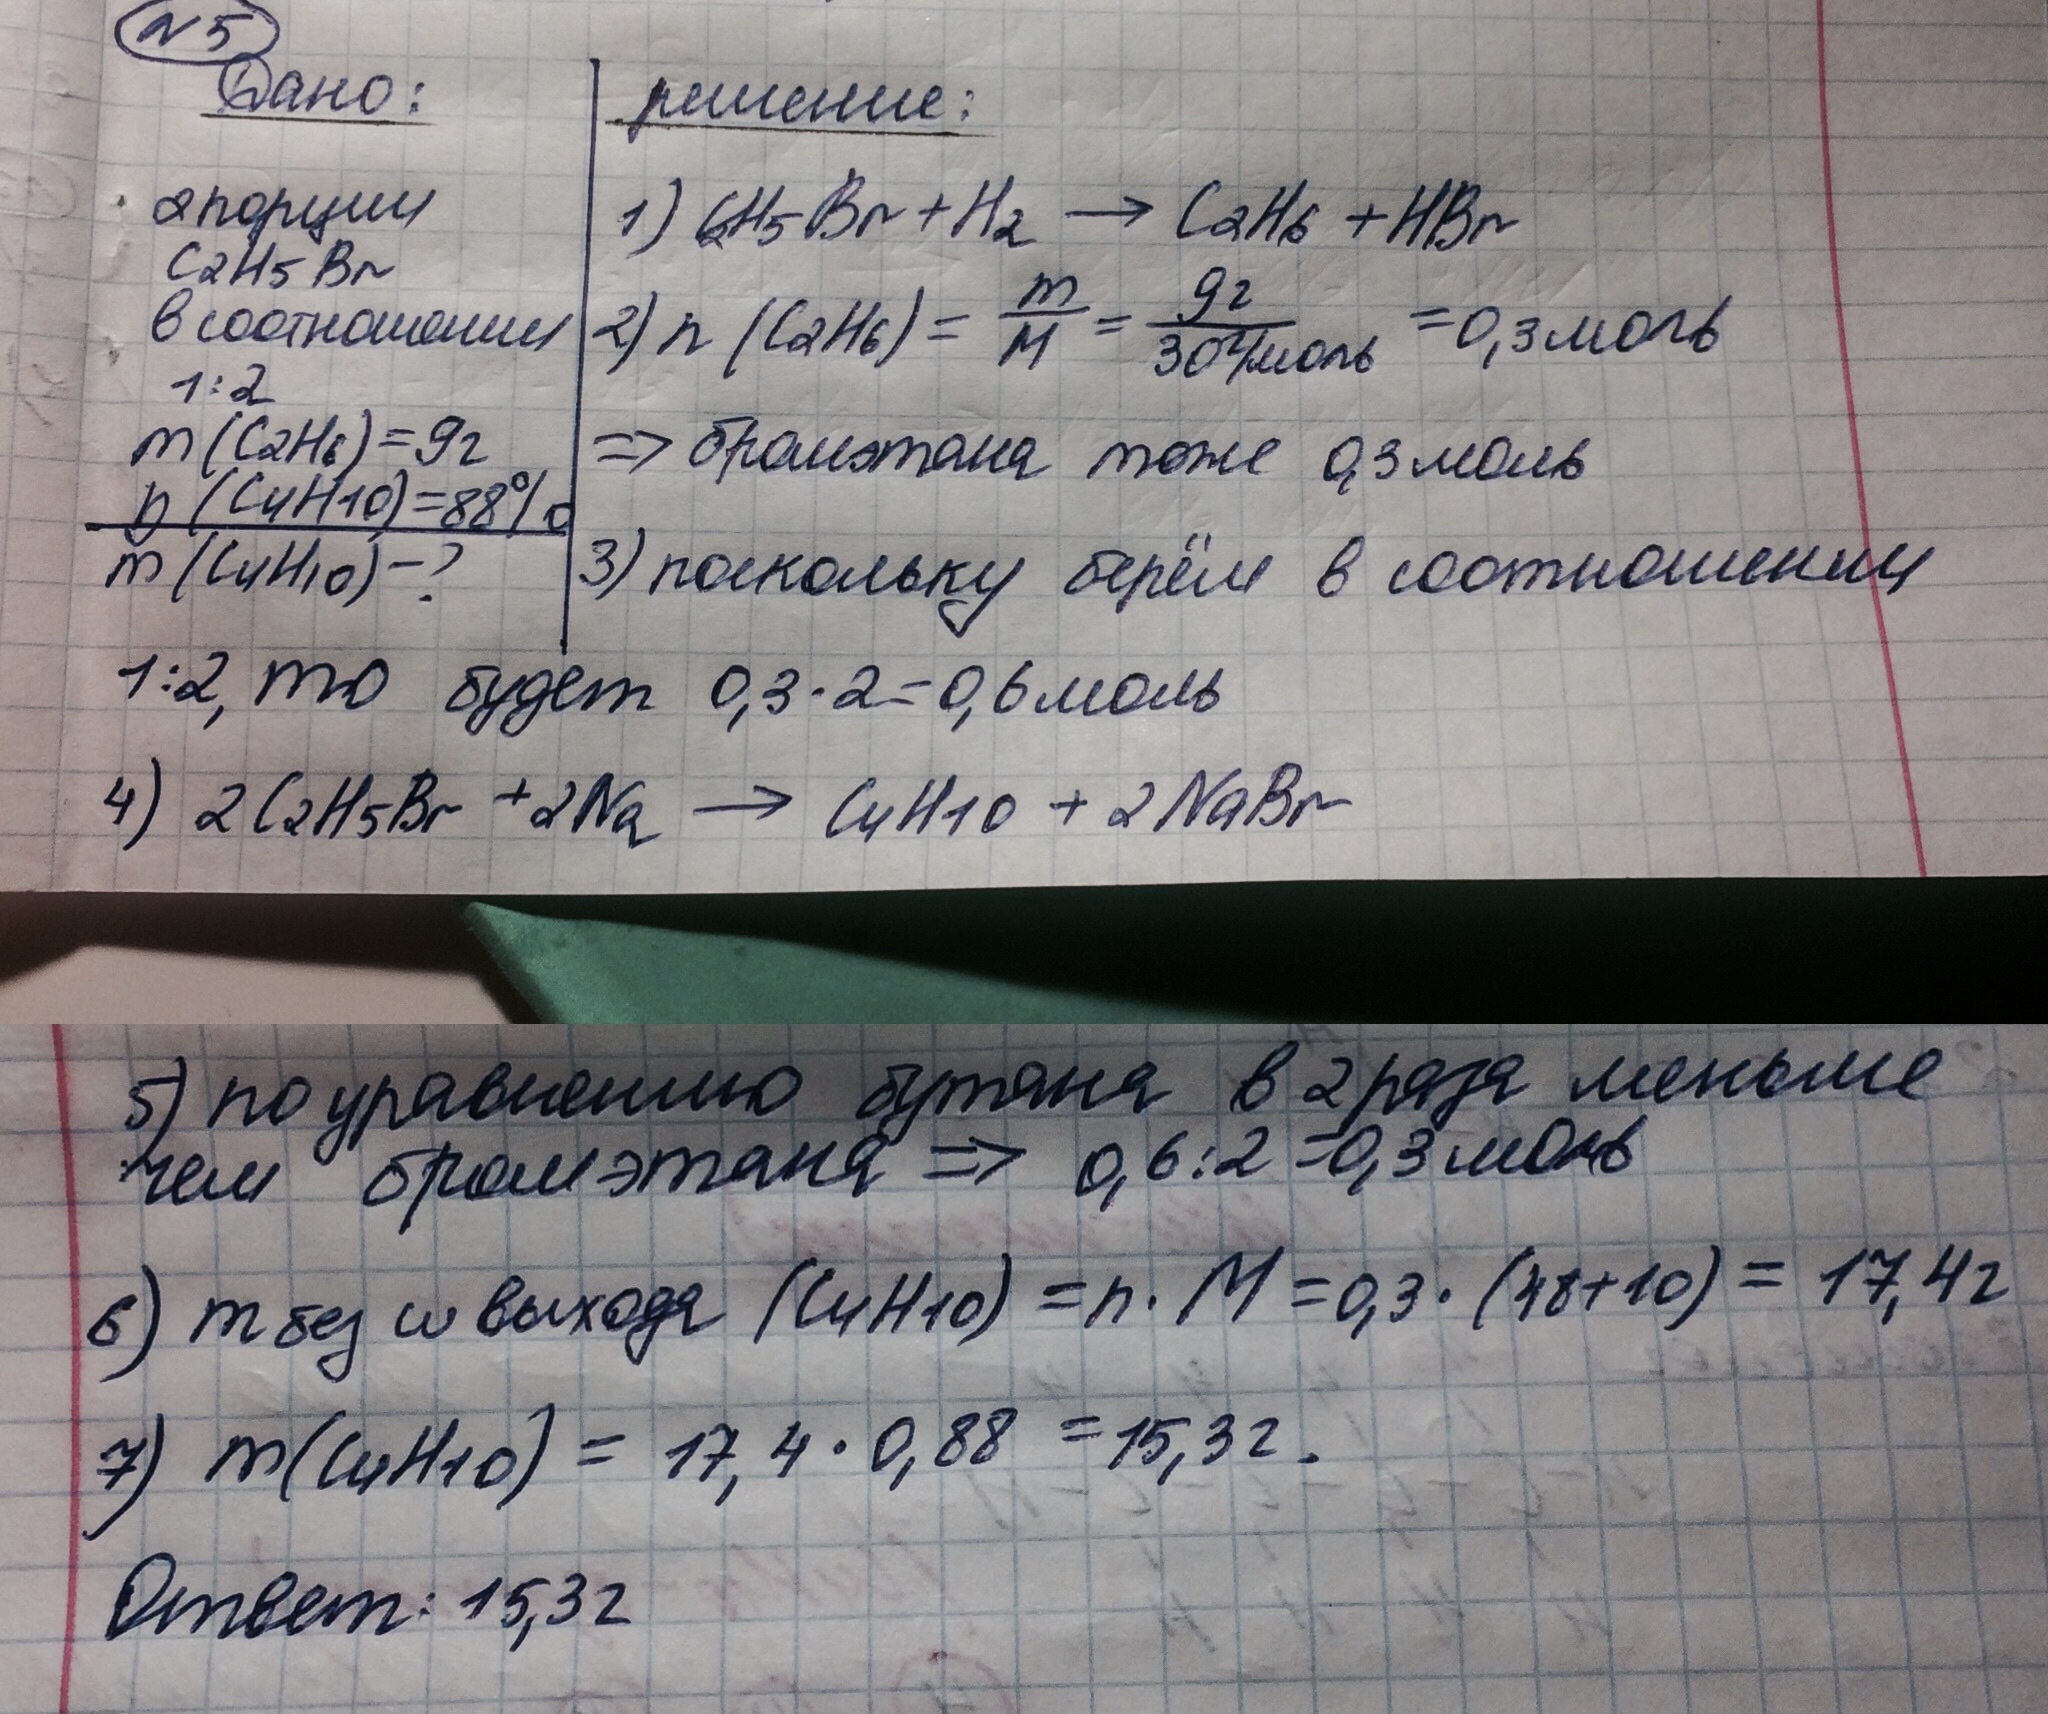 №5
Дано:
решение:
2 порции
C2H5Br
в соотношении
1:2
m(C2H6)=9г
η(C4H10)=88%
m(C4H10)-?
1) C2H5Br+H2 → C2H6+HBr
2) n(C2H6) = m/M = 9г/30г/моль = 0,3моль
=> бромэтана тоже 0,3моль
3) поскольку берём в соотношении
1:2, то будет 0,3·2=0,6моль
4) 2C2H5Br+2Na → C4H10+2NaBr
5) по уравнению бутана в 2 раза меньше
чем бромэтана => 0,6:2=0,3моль
6) m без w выхода (C4H10) = n·M=0,3·(48+10) = 17,4г
7) m(C4H10) = 17,4·0,88 = 15,3г.
Ответ: 15,3г